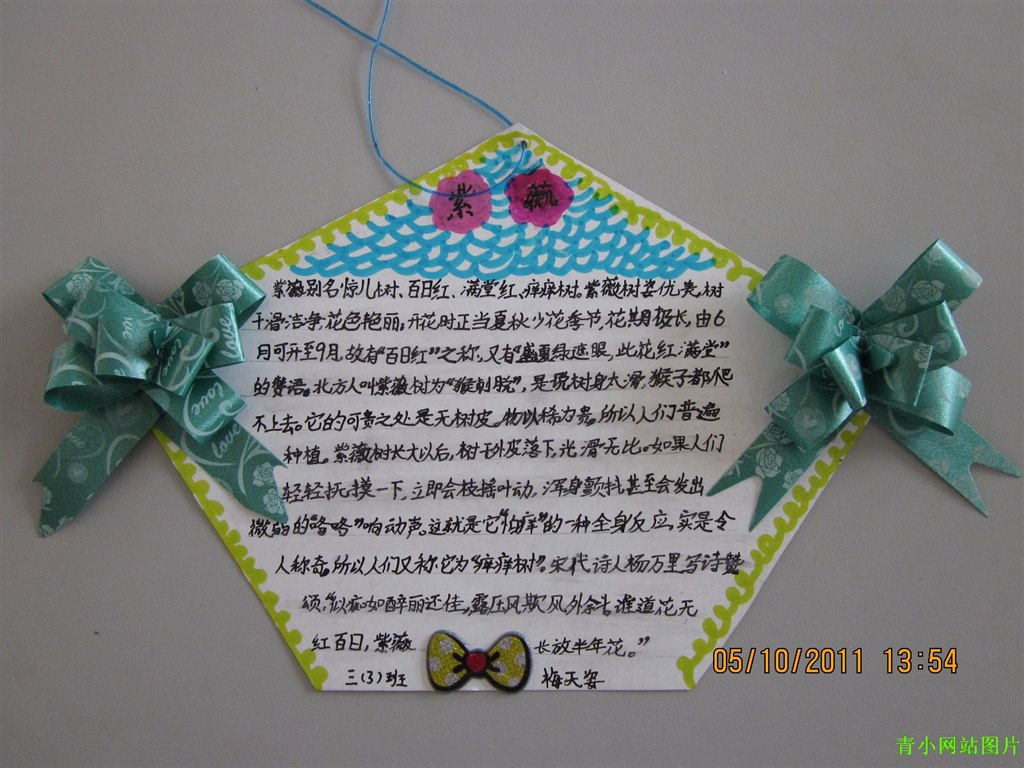 紫薇
紫薇别名惊儿树、百日红、满堂红、痒痒树。紫薇树姿优美,树
干滑洁净,花色艳丽;开花时正当夏秋少花季节,花期极长,由6
月可开至9月,故有“百日红”之称,又有“盛夏绿遮眼,此花红满堂”
的赞语。北方人叫紫薇树为“猴刺脱”,是说树身太滑,猴子都爬
不上去。它的可贵之处是无树皮。物以稀为贵。所以人们普遍
种植。紫薇树长大以后,树干外皮落下,光滑无比。如果人们
轻轻抚摸一下,立即会枝摇叶动,浑身颤抖,甚至会发出
微弱的“咯咯”响动声。这就是它“怕痒”的一种全身反应,实是令
人称奇。所以人们又称它为“痒痒树”。宋代诗人杨万里写诗赞
颂,“似痴如醉丽还佳,露压风欺风外斜,谁道花无
红百日,紫薇长放半年花。”
三(3)班 梅天姿
05/10/2011 13:54
青小网站图片
love
love
love
love